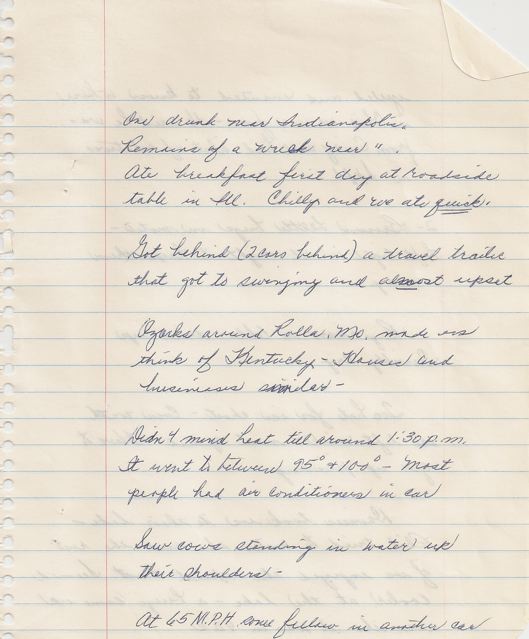 One drunk near Indianapolis.
Remains of a wreck near ".
Ate breakfast first day at roadside
table in Ill. Chilly and we ate quick.
Got behind (2 cars behind) a travel trailer
that got to swinging and almost upset
Ozarks around Rolla, Mo. made us
think of Kentucky - Houses and
businesses similar -
Didn't mind heat till around 1:30 p.m.
It went to between 95° + 100° - Most
people had air conditioners in car
Saw cows standing in water up
their shoulders -
At 65 M.P.H some fellow in another car